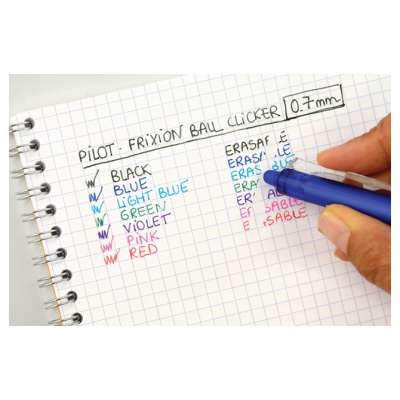 PILOT - FRIXION BALL CLICKER 0.7mm
BLACK
BLUE
LIGHT BLUE
GREEN
VIOLET
PINK
RED
ERASA LE
ERAS LE
ERAS BL
ERA
ER ABL
E SABLE
E SABLE